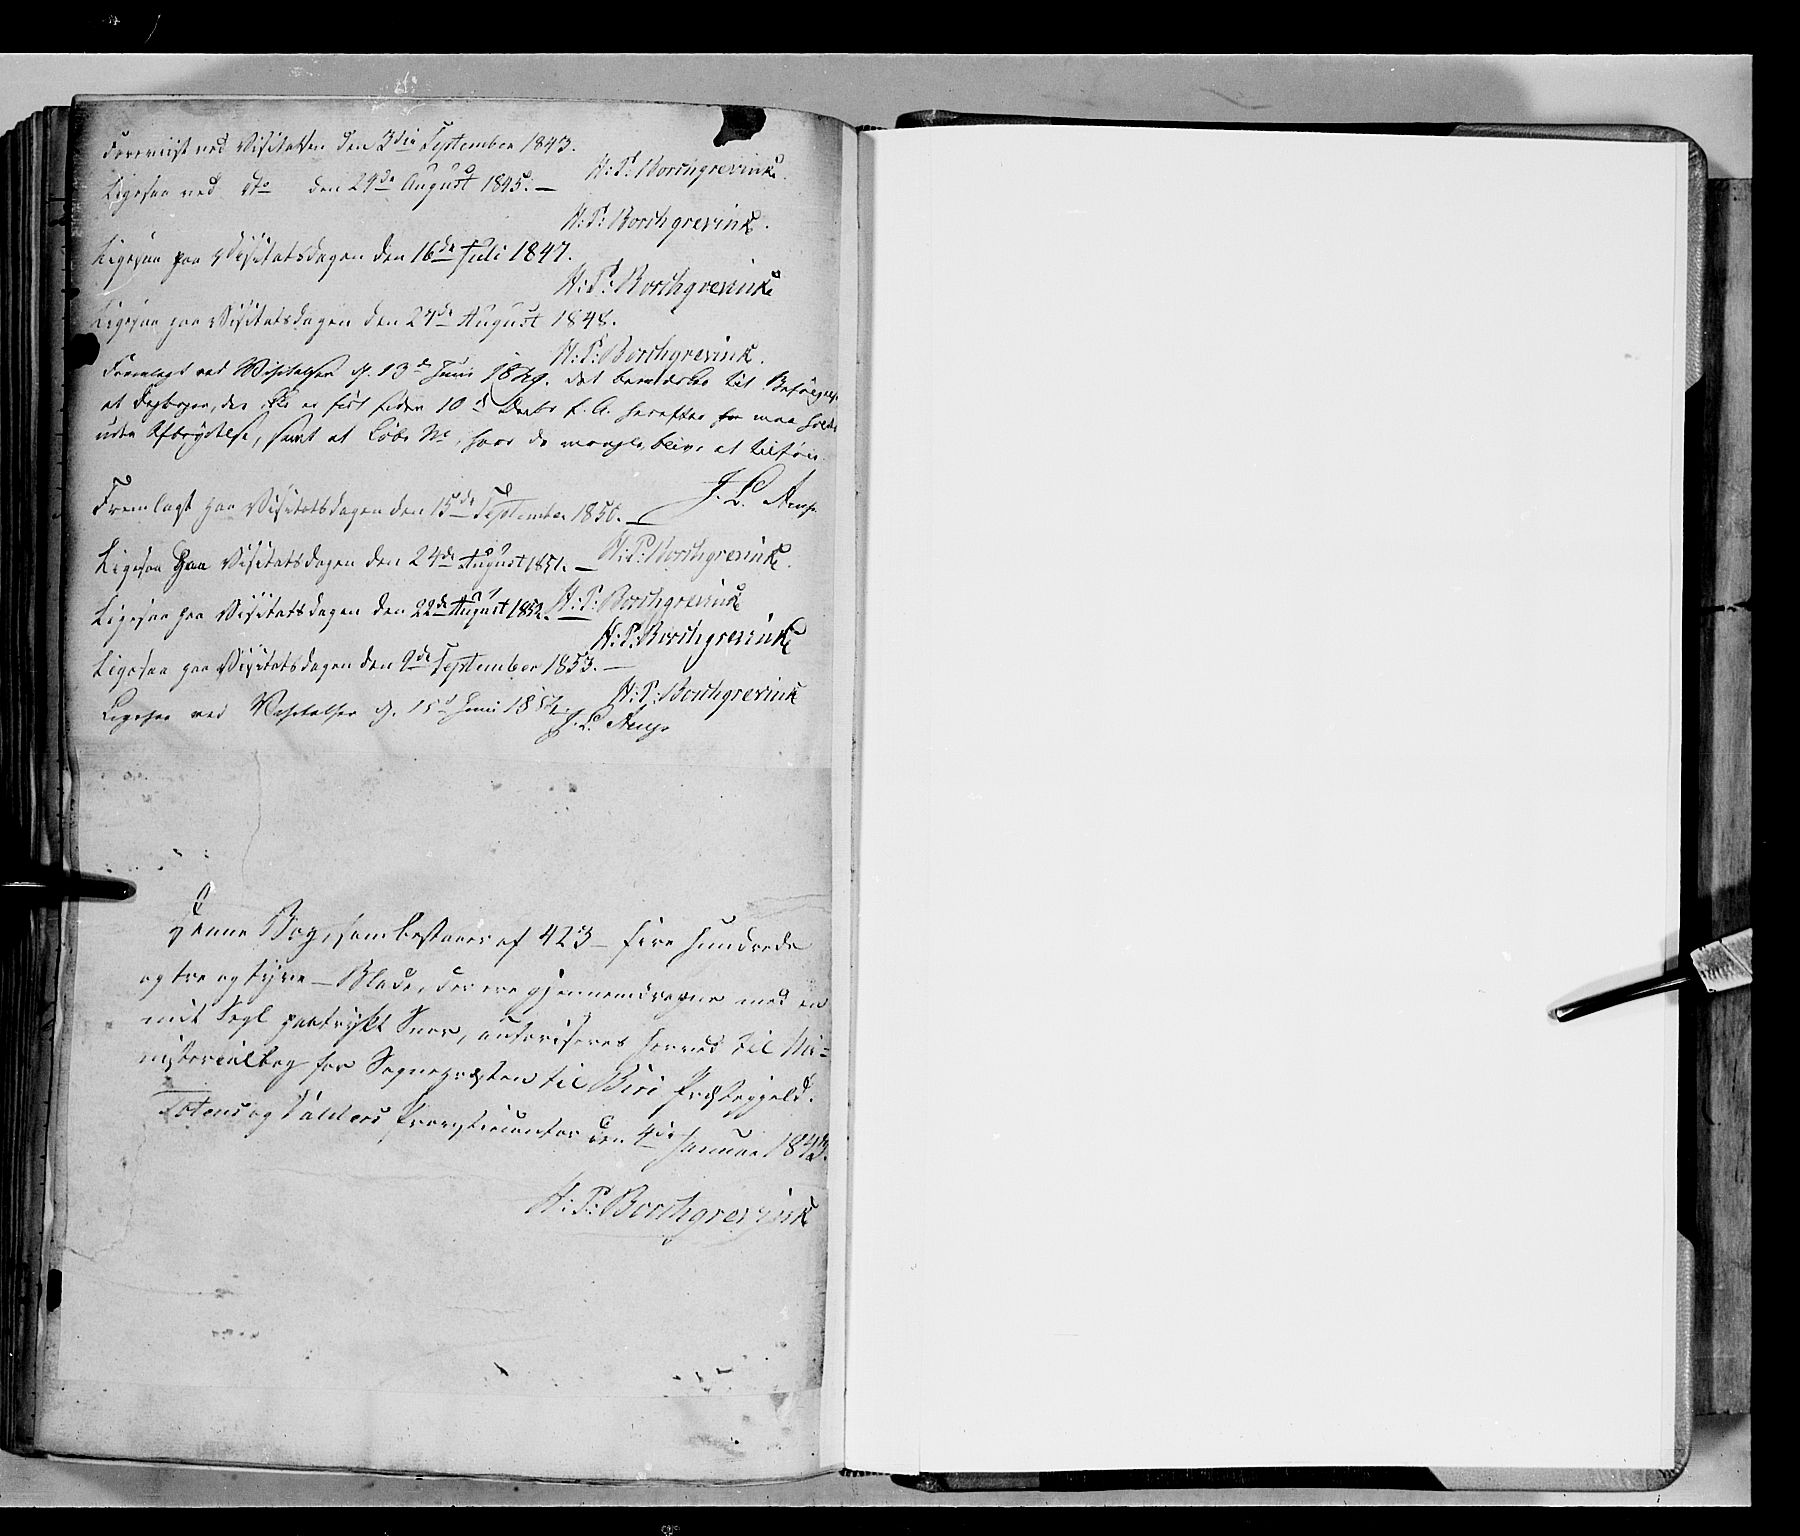 Foreviist ved Visitatsen den 3die September 1843.
H: P: Borchgrevink.
Ligesaa ved do den 24de August 1845. —
H: P: Borchgrevink.
Ligesaa paa Visitatsdagen den 16de Juli 1847.
H: P: Borchgrevink
Ligesaa paa Visitatsdagen den 24de August 1848.
H: P: Borchgrevink.
Fremlagt ved Visitatsen d. 13de Juni 1849. det bemærkes til
at Dagbogen, der ikke er ført siden 10 Decbr f. A. herefter maa holdes
uden Afbrydelse, samt at Løbe No, hvor de mangle, bliver at tilføie.
J. L. Arup
Fremlagt paa Visitatsdagen den 15de September 1850. —
H: P: Borchgrevink.
Ligesaa paa Visitatsdagen den 24de August 1851. —
H: P: Borchgrevink
Ligesaa paa Visitatsdagen den 22de August 1852. —
H: P: Borchgrevink
Ligesaa paa Visitatsdagen den 9de September 1853. —
H: P: Borchgrevink
Ligesaa ved Visitatsen d. 15de Juni 1854.
J. L. Arup
Denne Bog, som bestaaer af 423 — fire hundrede
og tre og tyve — Blade, der ere gjennemdragne med en
mit Segl paatrykt Snor, autoriseres herved til Mi=
nisterialbog for Sognepræsten til Biri Præstegjeld.
Totens og Valders Provstiecontor den 4de Januar 1843.
H: P: Borchgrevink